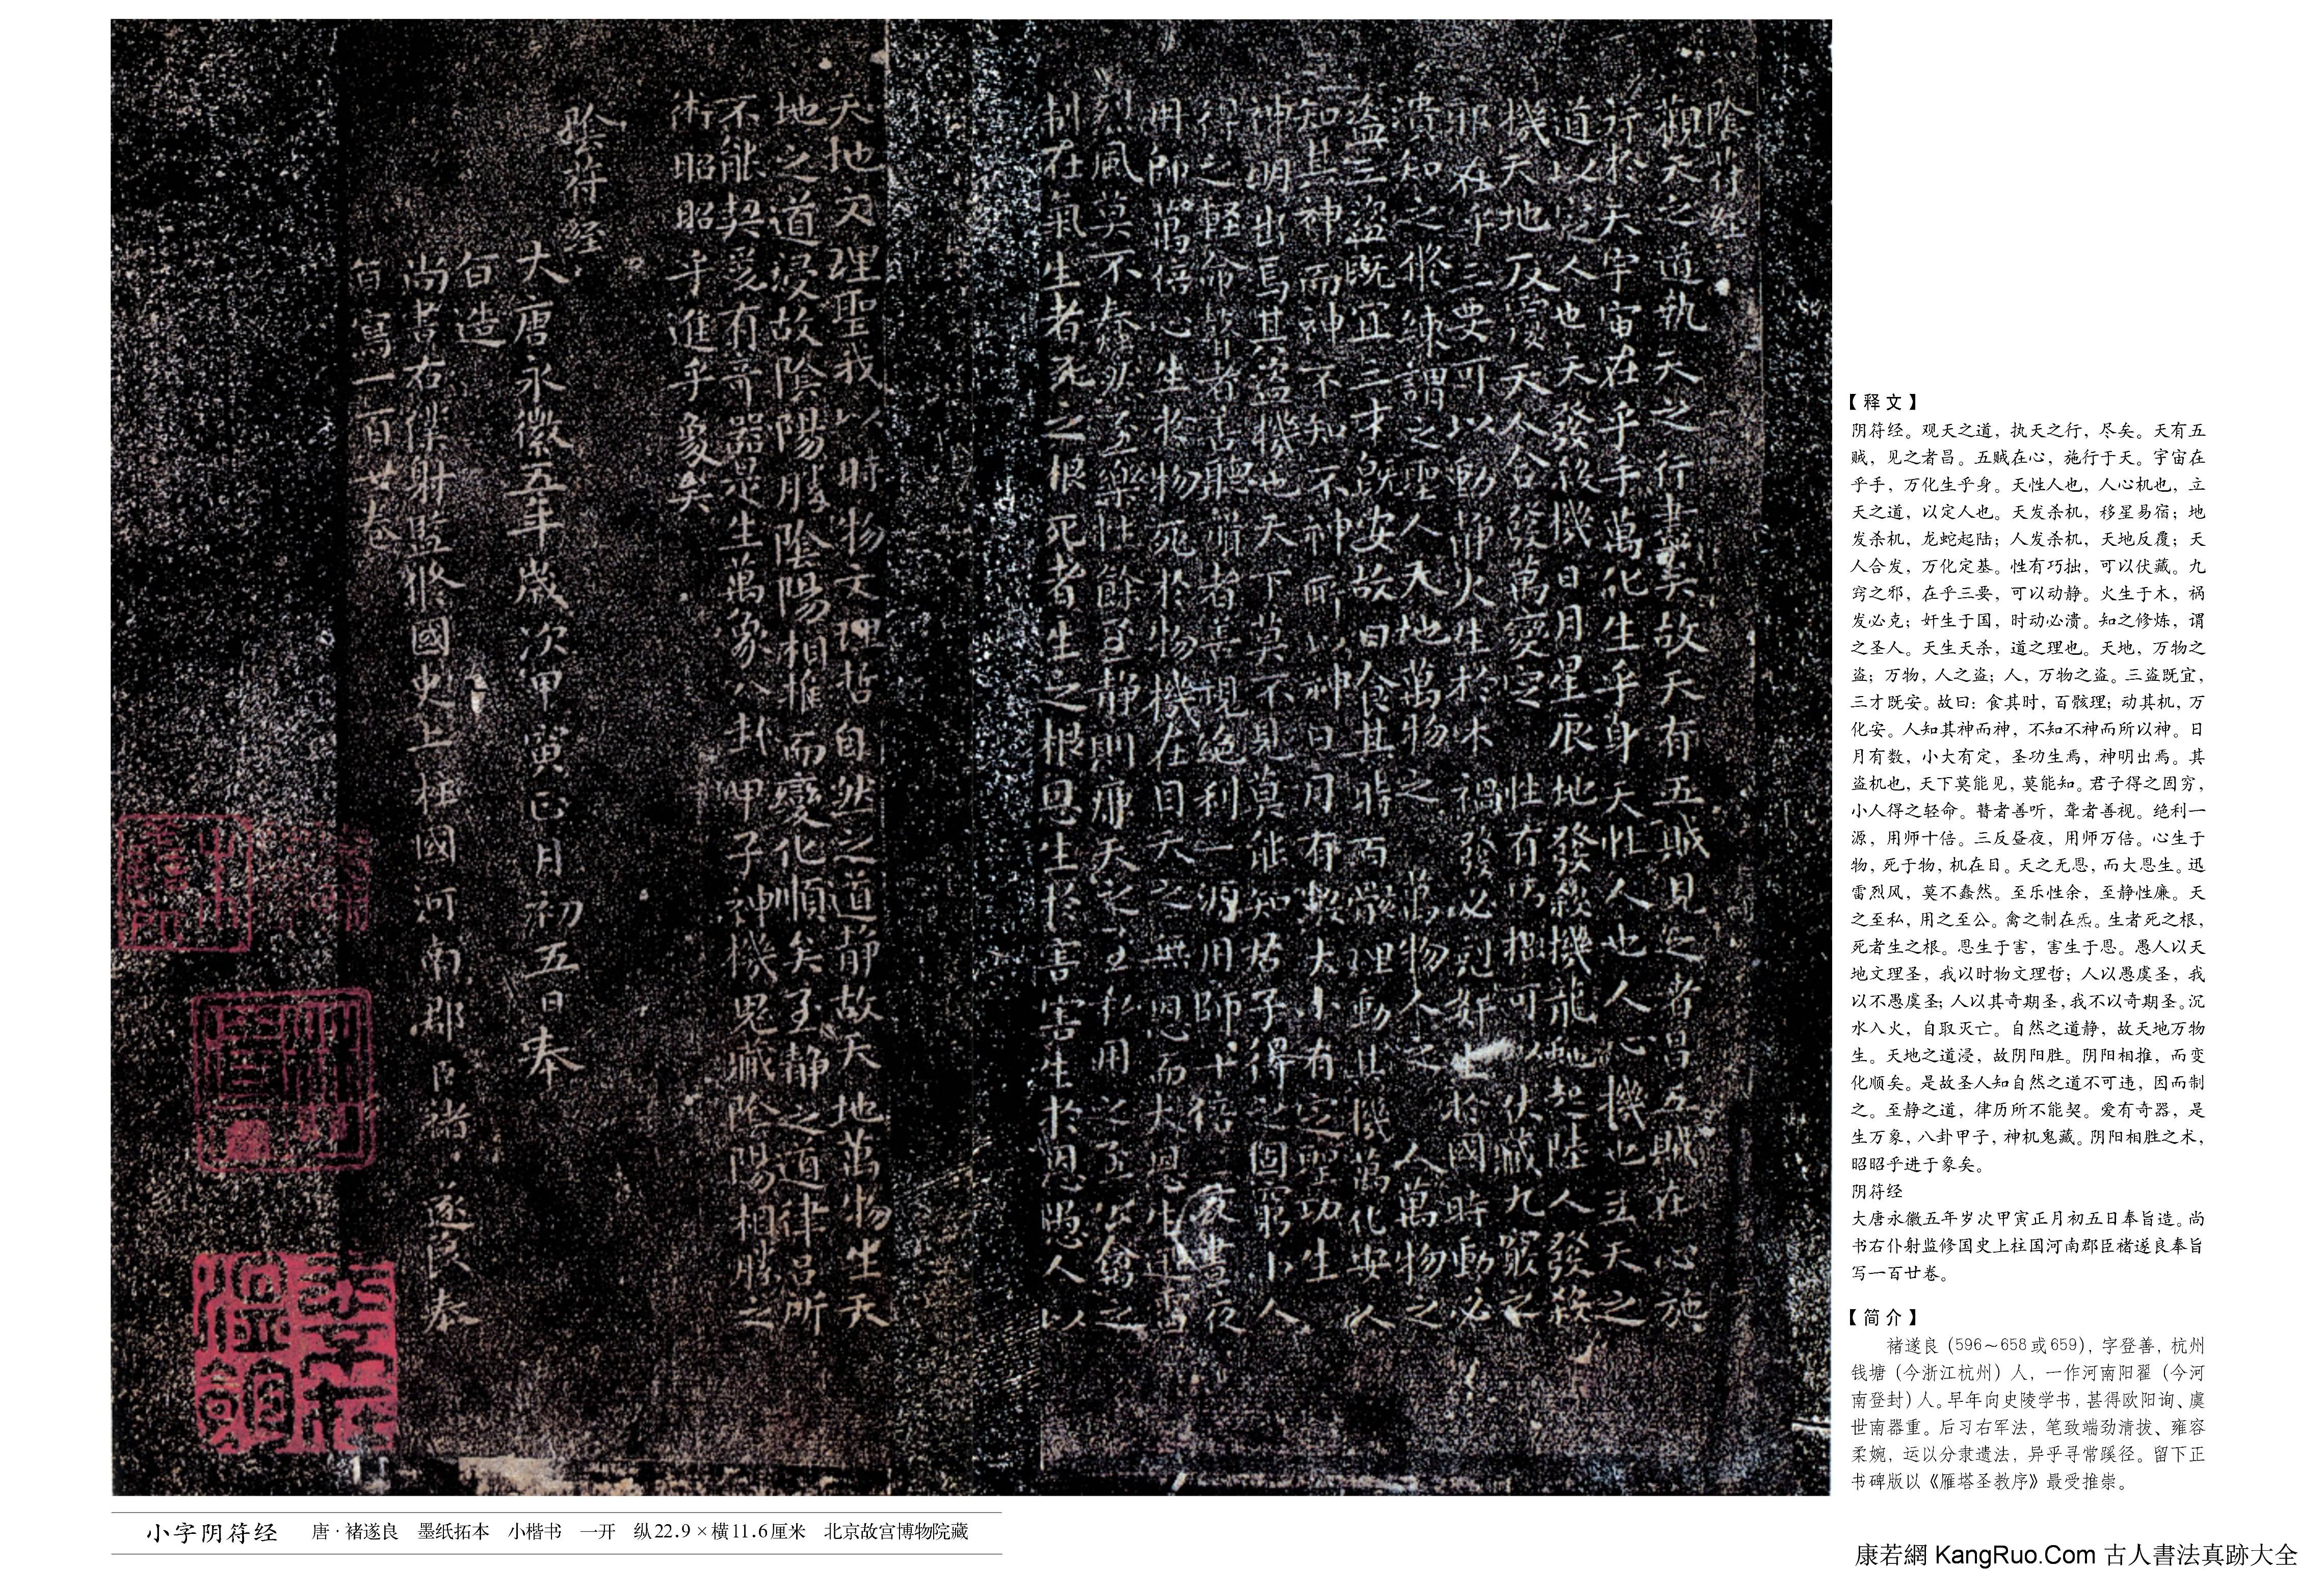 陰符經
觀天之道執天之行盡矣故天有五賊見之者昌五賊在心施
行於天宇宙在乎手萬化生乎身天性人也人心機也立天之
道以定人也天發殺機日月星辰地發殺機龍蛇起陸人發殺
機天地反覆天人合發萬變定性有巧拙可以伏藏九竅之
邪在乎三要可以動靜火生於木禍發必剋姧生於國時動必
潰知之修練謂之聖人天地萬物之萬物人之人萬物之
盜三盜既宜三才既安故曰食其時百骸理動其機萬化安人
知其神而神不知不神所以神日月有數大小有定聖功生
神明出焉其盜機也天下莫不見莫能知君子得之固窮小人
得之輕命瞽者善聽聾者善視絕利一源用師十倍反晝夜
用師萬倍心生於物死於物機在目天之無恩而大恩生迅雷
烈風莫不蠢然至樂性餘至靜則廉天之至私用之至公禽之
制在氣生者死之根死者生之根恩生於害害生於恩愚人以
天地文理聖我以時物文理哲自然之道靜故天地萬物生天
地之道浸故陰陽勝陰陽相推而變化順矣至靜之道律呂所
不能契爰有奇器是生萬象八卦甲子神機鬼藏陰陽相勝之
術昭昭乎進乎象矣
陰符經
大唐永徽五年歲次甲寅正月初五日奉
旨造
尚書右僕射監修國史上柱國河南郡臣褚遂良奉
旨寫一百廿卷
【释文】
阴符经。观天之道，执天之行，尽矣。天有五
贼，见之者昌。五贼在心，施行于天。宇宙在
乎手，万化生乎身。天性人也，人心机也，立
天之道，以定人也。天发杀机，移星易宿；地
发杀机，龙蛇起陆；人发杀机，天地反覆；天
人合发，万化定基。性有巧拙，可以伏藏。九
窍之邪，在乎三要，可以动静。火生于木，祸
发必克；奸生于国，时动必溃。知之修炼，谓
之圣人。天生天杀，道之理也。天地，万物之
盗；万物，人之盗；人，万物之盗。三盗既宜，
三才既安。故曰：食其时，百骸理；动其机，万
化安。人知其神而神，不知不神而所以神。日
月有数，小大有定，圣功生焉，神明出焉。其
盗机也，天下莫能见，莫能知。君子得之固穷，
小人得之轻命。瞽者善听，聋者善视。绝利一
源，用师十倍。三反昼夜，用师万倍。心生于
物，死于物，机在目。天之无恩，而大恩生。迅
雷烈风，莫不蠢然。至乐性余，至静性廉。天
之至私，用之至公。禽之制在炁。生者死之根，
死者生之根。恩生于害，害生于恩。愚人以天
地文理圣，我以时物文理哲；人以愚虞圣，我
以不愚虞圣；人以其奇期圣，我不以奇期圣。沉
水入火，自取灭亡。自然之道静，故天地万物
生。天地之道浸，故阴阳胜。阴阳相推，而变
化顺矣。是故圣人知自然之道不可违，因而制
之。至静之道，律历所不能契。爰有奇器，是
生万象，八卦甲子，神机鬼藏。阴阳相胜之术，
昭昭乎进于象矣。
阴符经
大唐永徽五年岁次甲寅正月初五日奉旨造。尚
书右仆射监修国史上柱国河南郡臣褚遂良奉旨
写一百廿卷。
【简介】
褚遂良（596～658或659），字登善，杭州
钱塘（今浙江杭州）人，一作河南阳翟（今河
南登封）人。早年向史陵学书，甚得欧阳询、虞
世南器重。后习右军法，笔致端劲清拔、雍容
柔婉，运以分隶遗法，异乎寻常蹊径。留下正
书碑版以《雁塔圣教序》最受推崇。
小字阴符经 唐·褚遂良 墨纸拓本 小楷书 一开 纵22.9×横11.6厘米 北京故宫博物院藏
康若網 KangRuo.Com 古人書法真跡大全